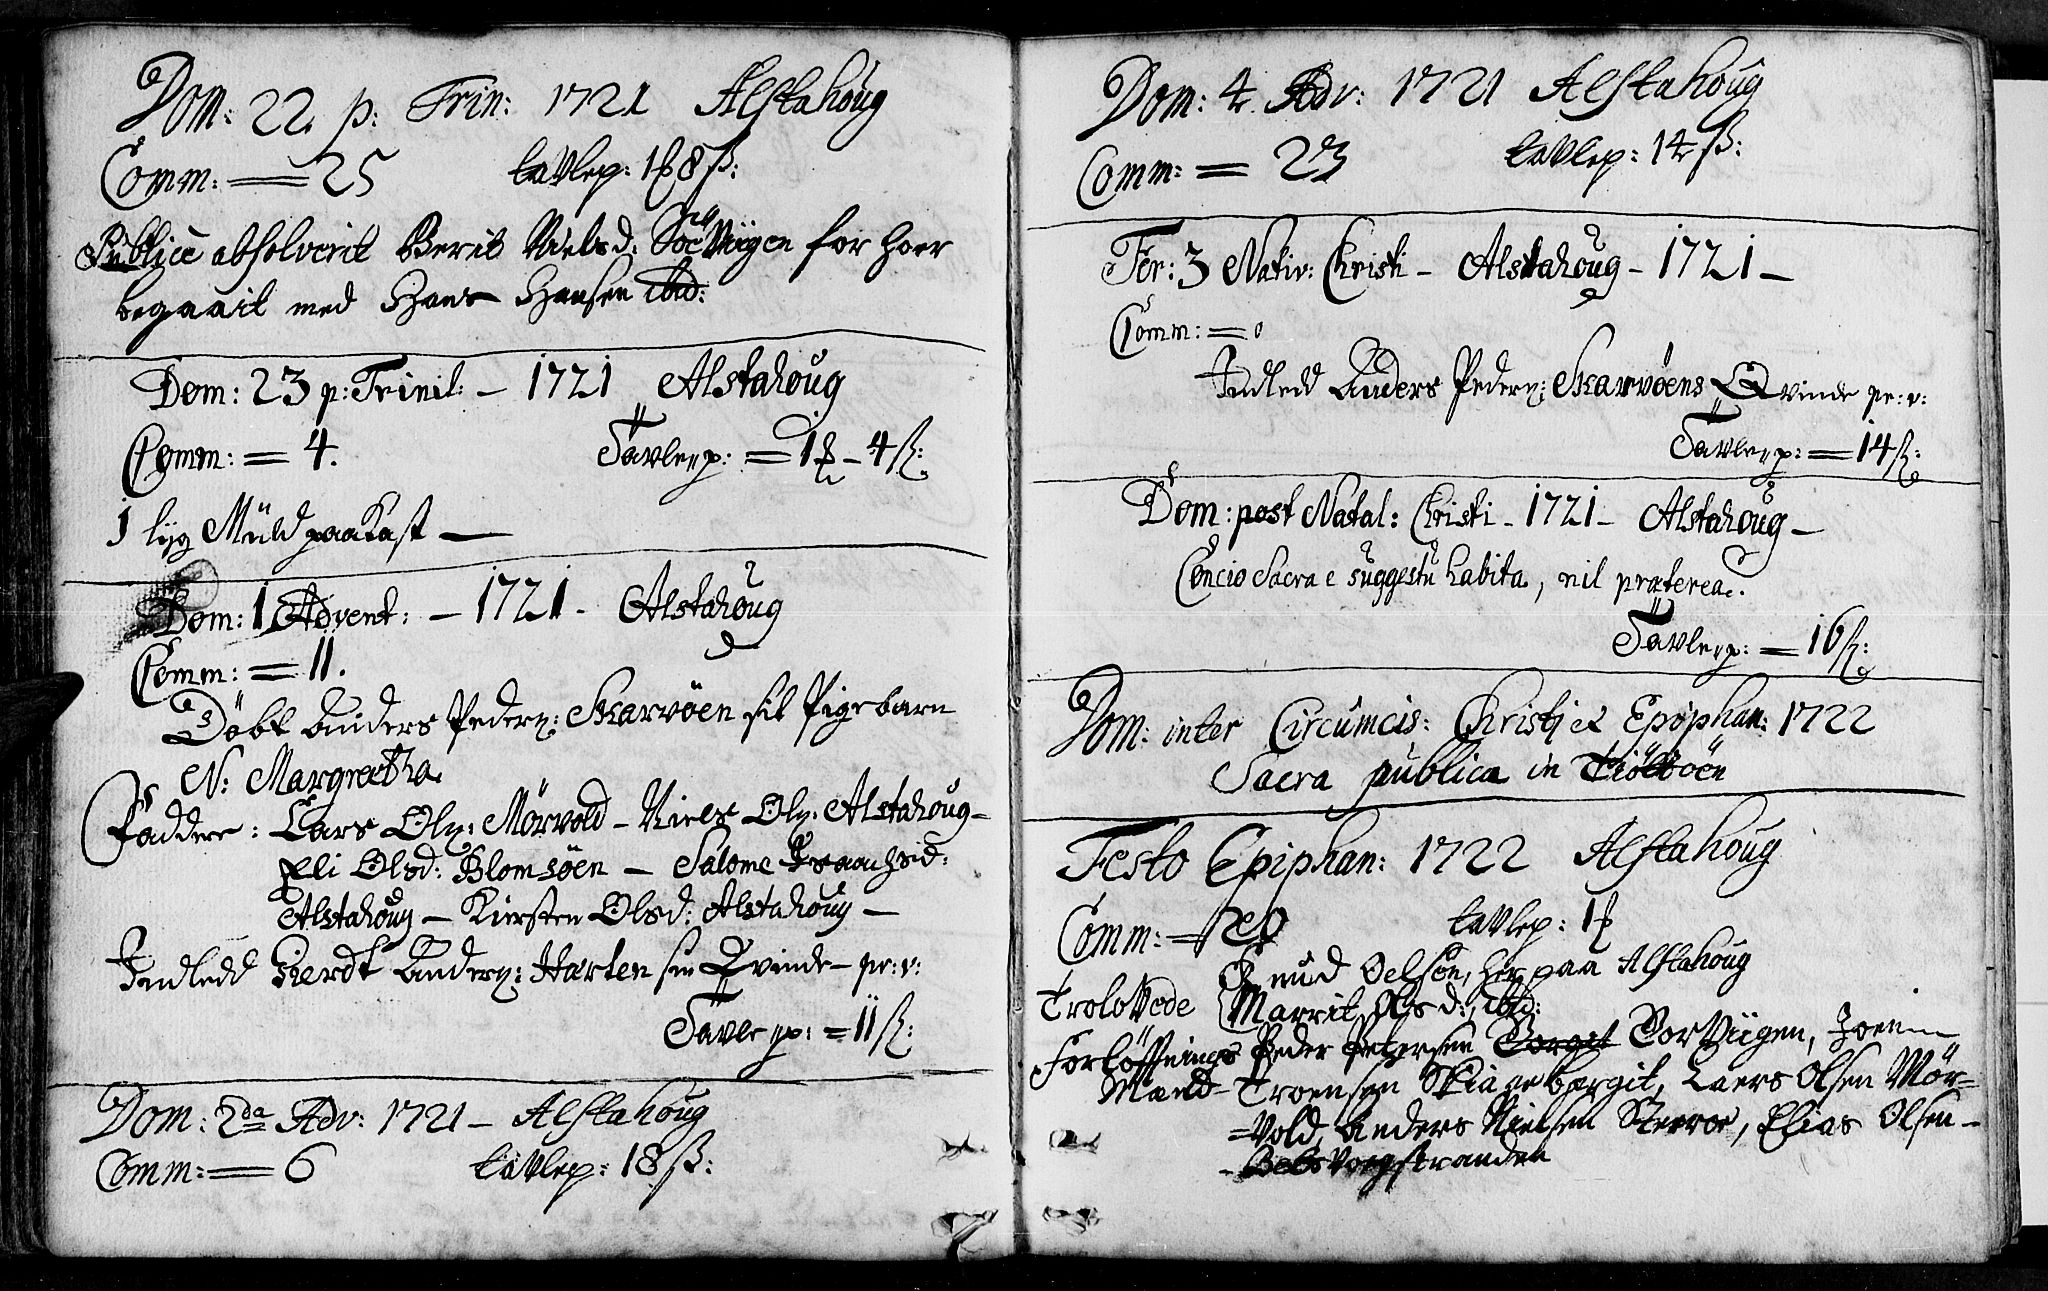 Dom: 22. p: Trin: 1721 Alstahoug
Comm: = 25 tavlep: 1 8 ß:
Publicè absolverit Berit Nielsd: Söe Viigen for hoer
begaait med Hans Hansen ibid:
Dom: 23 p: Trinit: - 1721 Alstahoug
Comm: = 4. Tavlep: = 1 - 4 ß:
1 lijg Müld paakast —
Dom: 1 Advent: - 1721 - Alstahoug
Comm: = 11.
Döbt Anders Peders: Skarvöen sit Pigebarn
N: Margreetha
Faddere: Lars Ols: Mörvold - Niels Ols: Alstahoug -
Eli Olsd: Blomsöen - Salome
Alstahoug - Kirsten Olsd: Alstahoug -
Indledd Gierdt Anders: Harten sin Qvinde - pr: v:
Tavlep: = 11 ß:
Dom: 2da Adv: 1721 - Alstahoug
Comm: = 6 tavlep: 18 ß:
Dom: 4 Adv: 1721 Alstahoug
Comm: = 23 tavlep: 14 ß:
Fer: 3 Nativ: Christi - Alstahoug - 1721 -
Comm: = 0
Indledd Anders Peders: Skarvöens Qvinde pr: v:
Tavlep: = 14 ß:
Dom: post Natal: Christi - 1721 - Alstahoug -
Concio Sacra e suggestu habita, nil præterea.
Tavlep: = 16 ß:
Dom: inter Circumcis: Christi et Epiphan: 1722
Sacra publica in Tiöttöen
Festo Epiphan: 1722 Alstahoug
Comm: = 20 tavlep: 1
Knud Oelsön, her paa Alstahoug
Trolovede Marrit Olsd:, ibid:
Forlöffnings Peder Petersen Torviigen, Joen
Mænd - Troensen Skiaggebergit, Laers Olsen Mör=
=vold, Anders Nielsen Sterroe, Elias Olsen -